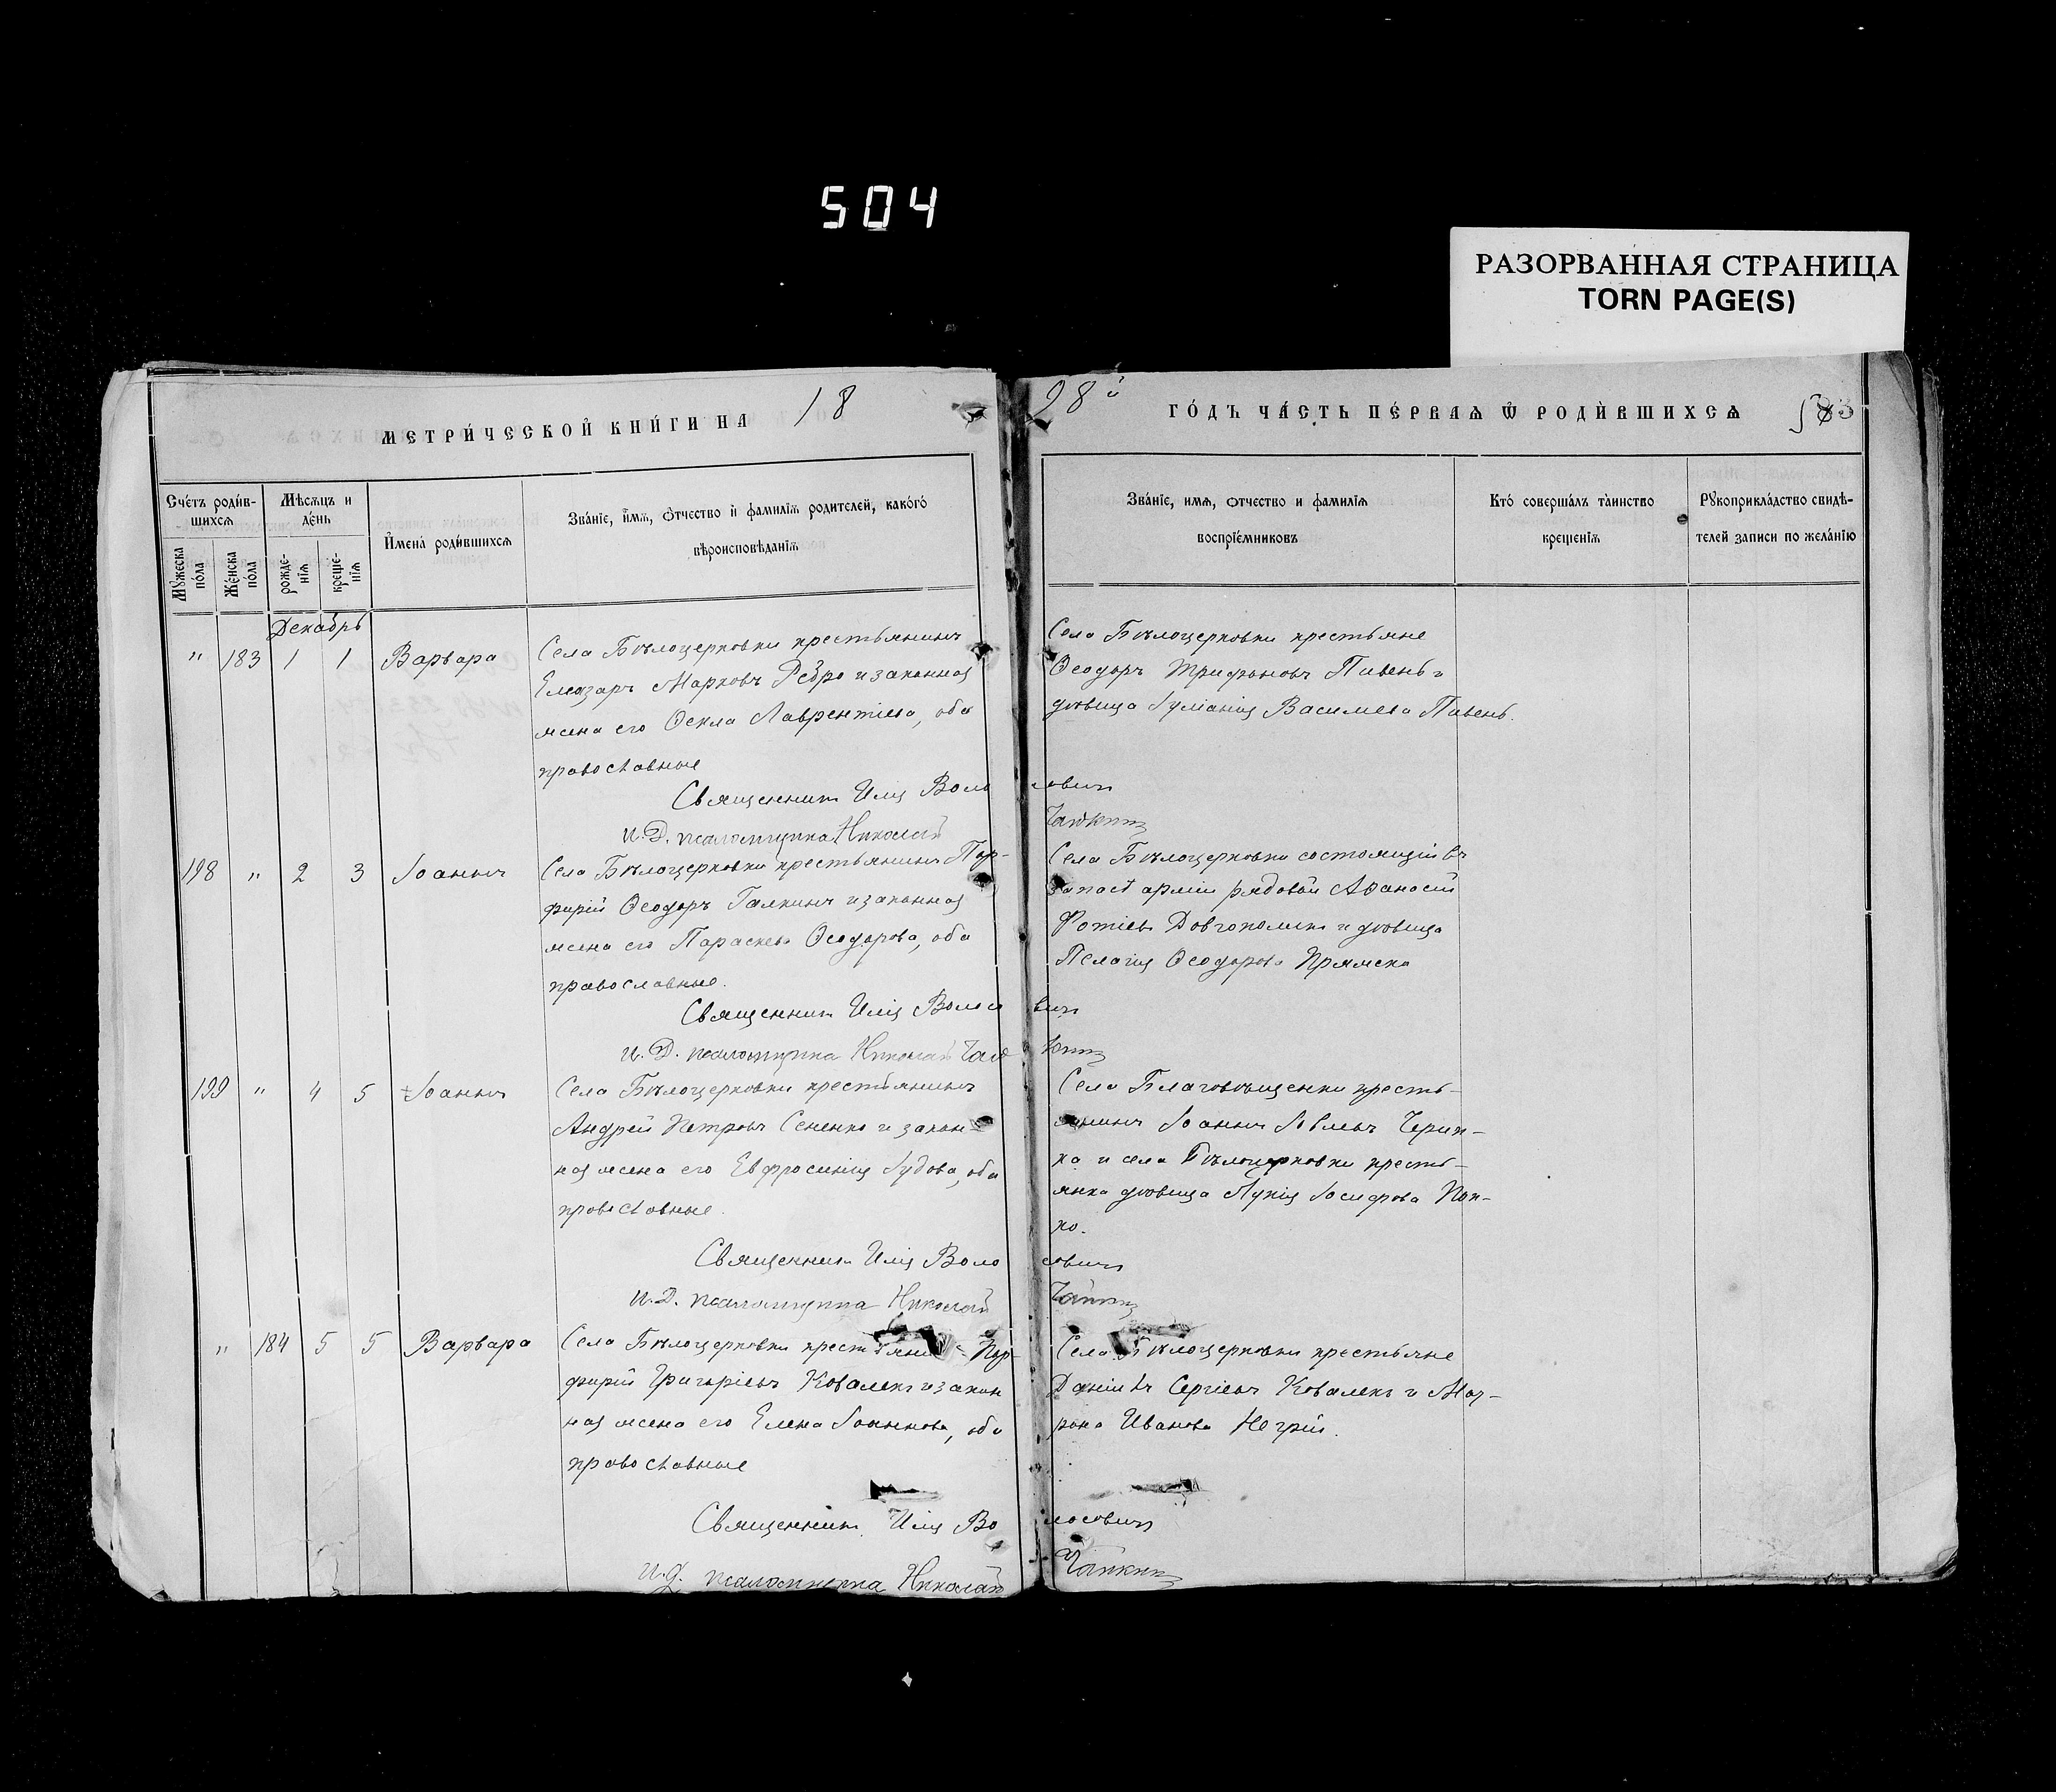 504
РАЗОРВАННАЯ СТРАНИЦА
TORN PAGE(S)
МЕТРИ́ЧЕСКОЙ КНИ́ГИ НА 18
98 й ГО́ДЪ ЧА́СТЬ ПЕ́РВАЯ Ѡ РОДИ́ВШИХСЯ
Сче́тъ роди́в-
шихся
Мѣсяцъ и
де́нь
И́мена́ роди́вшихся
Зва́нїе, и́мя, ѻ́тчество и̂ фами́лїя роди́телей, како́гѻ
вѣроисповѣ́данїя
Мꙋжеска
по́ла
Же́нска
по́ла
рожде-
нїя
креще-
нїя
Зва́нїе, имя, ѻтчество и фами́лїя
воспрїе́мниковъ
Кто́ соверша́лъ та́инство
креще́нїя
Рꙋкоприкла́дство свидѣ-
телей записи по жела́нїю
Декабрь
" 183 1 1 Варвара
Села Бѣлоцерковки крестьянинъ
Елеазаръ Марковъ Ребро и законная
жена его Ѳекла Лаврентіева, оба
православные
Священникъ Илія Воло
И. Д. псаломщика Николай
Села Бѣлоцерковки крестьяне
Ѳеодоръ Трифоновъ Пивень и
дѣвица Іуліанія Васильева Пивень.
198 " 2 3 Іоаннъ
Села Бѣлоцерковки крестьянинъ Пор-
фирій Ѳеодоръ Галкинъ и законная
жена его Параскева Ѳеодорова, оба
православные.
Священникъ Илія Волосо
И. Д. псаломщика Николай
Села Бѣлоцерковки состоящій въ
запасѣ арміи рядовой Аѳанасій
Фотіевъ Довгополикъ и дѣвица
Пелагія Ѳеодорова
вичъ
199 " 4 5 Іоаннъ
Села Бѣлоцерковки крестьянинъ
Андрей Петровъ Сененко и закон-
ная жена его Евфросинія Іудова, оба
православные.
Священникъ Илія Воло
И. Д. псаломщика Николай
Села Благовѣщенки кресть-
янинъ Іоаннъ Іовлевъ
и села Бѣлоцерковки кресть-
янка дѣвица Лукія Іосифова Поп-
ко.
совичъ
" 184 5 5 Варвара
Села Бѣлоцерковки крестьянинъ Пор-
фирій Григоріевъ Коваленко и закон
ная жена его Елена Іоаннова, оба
православные
Священникъ Илія Во
И. д. псаломщика Николай
Села Бѣлоцерковки крестьяне
Даніилъ Сергіевъ Коваленко и Мат-
рона Иванова Негрій.
лосовичъ